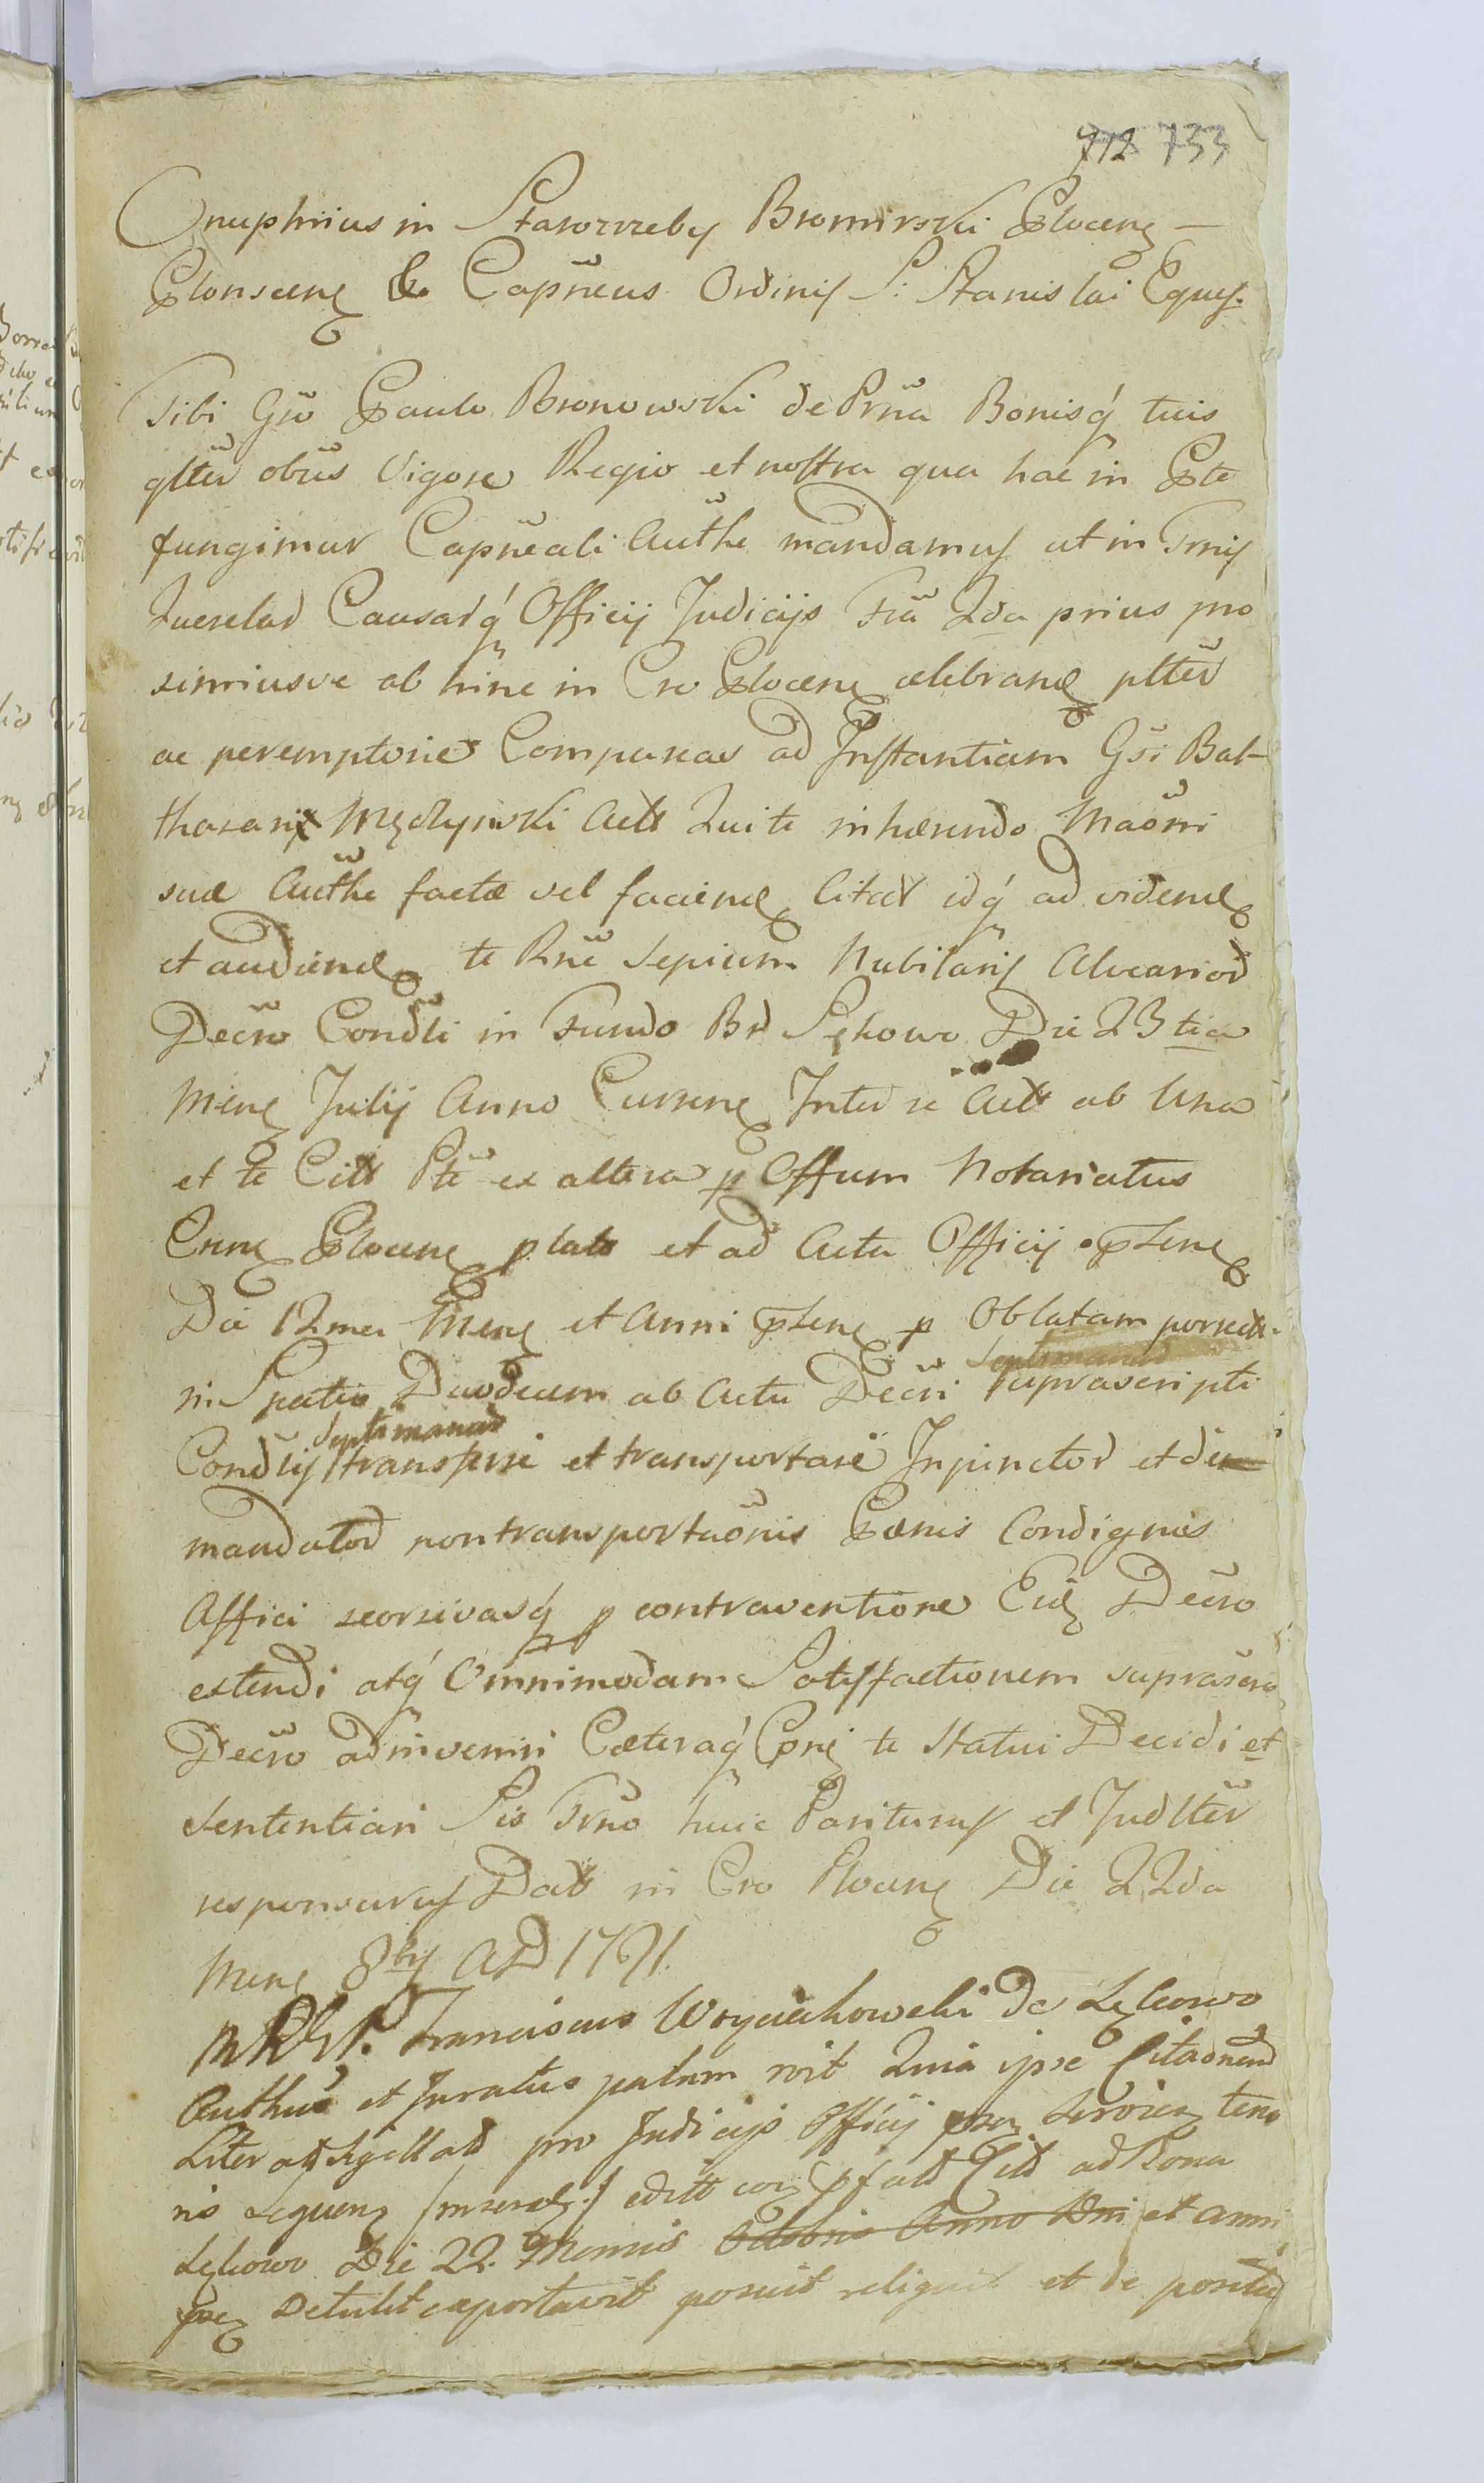 712 733
Onuphrius in Starozreby Bromirski Plocen –
Plonscen & Capneus Ordinis S: Stanislai Eques.
Tibi Gso Paulo Bronowski de Prna Bonisq tuis
gltter obus Vigore Regio et nostra qua hac in Pte
fungimur Capneali Authe mandamus ut in Trnis
Querelar Causarq Officij Judicijs Fria 2da prius pro
ximiusve ab hinc in Cro Plocen celebrand pltter
ac peremptorie Compareas ad Instantiam Gsi Bal-
thasaris Mędrzycki Acts Qui te inhærendo Maoni
suæ Authe factæ vel faciend Citat idq ad vidend
et audiend te Rne Sepium Nubilaris Alvearior
Decro Condli in Fundo Br Sękowo Die 23tia
Mens Julij Anno Curren Inter se Acts ab Una
et te Citt Pte ex altera p Offum Notariatus
Crne Plocen plato et ad Acta Officij pntens
Die 12ma Mens et Anni pnten p Oblatam porrect.
in Spatio Duodecim ab Actu Decri supra scripti
Septimanar
Condlij transferri et transportari Injunctor et de
mandator non transportaonis Pænis Condignis
Affici seorsivasq p contraventione Eid Decro
extendi atq Omnimodam Satisfactionem suprascrip
Decro adinveniri Cæteraq Cpni te Statui Decidi et
Sententiari Sis Trno huic Pariturus et Judltter
responsurus Datt in Cro Plocen Die 22da
Mens 8bris AD 1791.
Franciscus Woyciechowski de Lękowo
Authus et Juratus palam rvit Quia ipse Citaonem
Liter adsigillatt pro Judicijs Officij pnn Servien teno
ris sequen /: inserat :/ editt eoq pfatt Citt ad Bona
Sękowo Die 22. Mensis Octobris Anno Dni et anni
pnn Detulit exportavit posuit reliquit et de positis